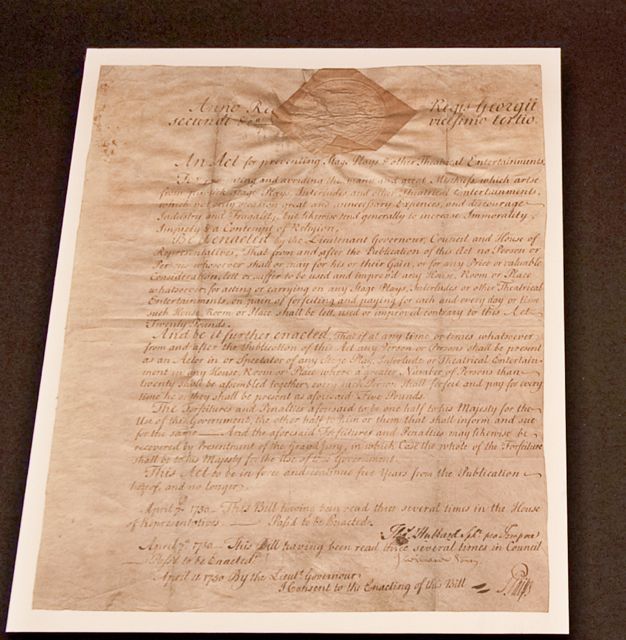 Anno Re Regis Georgii
secundi vicesimo tertio.
An Act for preventing Stage Plays & other Theatrical Entertainments.
For and avoiding the many and great Mischiefs which arise
from publick Stage Plays, Interludes and other Theatrical Entertainments,
which not only occasion great and unnecessary Expences, and discourage
Industry and Frugality, but likewise tend generally to increase Immorality,
Impiety & a Contempt of Religion.
Be it enacted by the Lieutenant Governour, Council and House of
Representatives, That from and after the Publication of this Act no Person or
Persons whosoever shall or may for his or their Gain, or for any Price or valuable
Consideration, lett or suffer to be used and improv'd any House, Room or Place
whatsoever for acting or carrying on any Stage Plays, Interludes or other Theatrical
Entertainments, on pain of forfeiting and paying for each and every day or time
such House, Room or Place shall be lett, used or improved contrary to this Act
Twenty Pounds.
And be it further enacted, That if at any time or times whatsoever
from and after the Publication of this Act any Person or Persons shall be present
as an Actor in or Spectator of any Stage Play, Interlude or Theatrical Entertain-
ment in any House, Room or Place where a greater Number of Persons than
twenty shall be assembled together, every such Person shall forfeit and pay for every
time he or they shall be present as aforesaid Five Pounds.
The Forfeitures and Penalties aforesaid to be one half to his Majesty for the
Use of the Government, the other half to him or them that shall inform and sue
for the same — And the aforesaid Forfeitures and Penalties may likewise be
recovered by Presentment of the Grand Jury, in which Case the whole of the Forfeiture
shall be to his Majesty for the Use of the Government.
This Act to be in force and continue five Years from the Publication
hereof, and no longer.
April 7th 1750. This Bill having been read three several times in the House
of Representatives. — Pass'd to be Enacted.
Hubbard Spkr. pro Tempore
April 7th 1750 — This Bill having been read three several times in Council
Pass'd to be Enacted
April 11 1750 By the Lieut. Governour
I Consent to the Enacting of this Bill